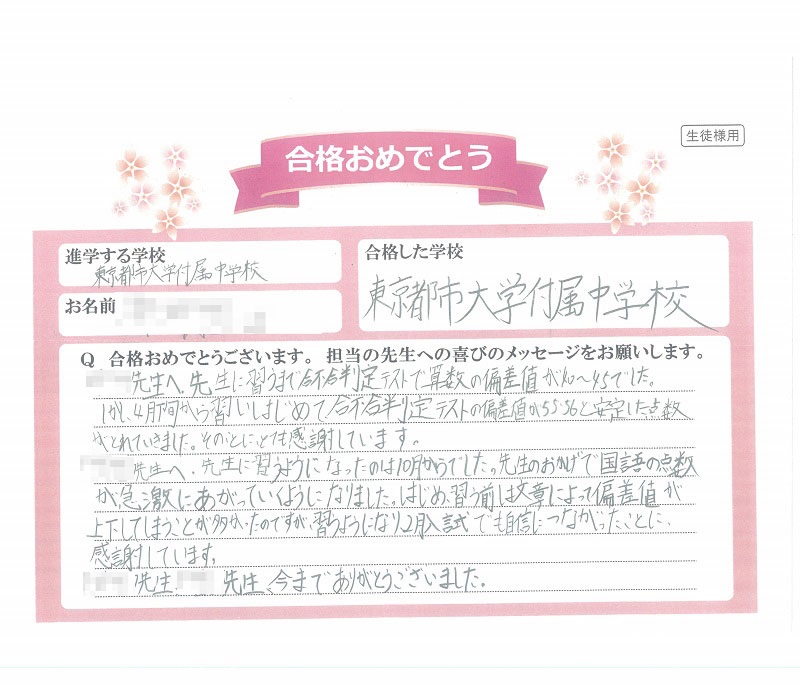 生徒様用
合格おめでとう
進学する学校
東京都市大学付属中学校
合格した学校
東京都市大学付属中学校
お名前
Q 合格おめでとうございます。担当の先生への喜びのメッセージをお願いします。
先生へ、先生に習うまで合不合判定テストで算数の偏差値が40〜45でした。
しかし、4月下旬から習いはじめて合不合判定テストの偏差値が55、56と安定した点数
がとれていきました。そのことに、とても感謝しています。
先生へ、先生に習うようになったのは10月からでした。先生のおかげで国語の点数
が急激にあがっていくようになりました。はじめ、習う前は文章によって偏差値が
上下してしまうことが多かったのですが、習うようになり2月入試でも自信につながったことに、
感謝しています。
先生、先生、今までありがとうございました。